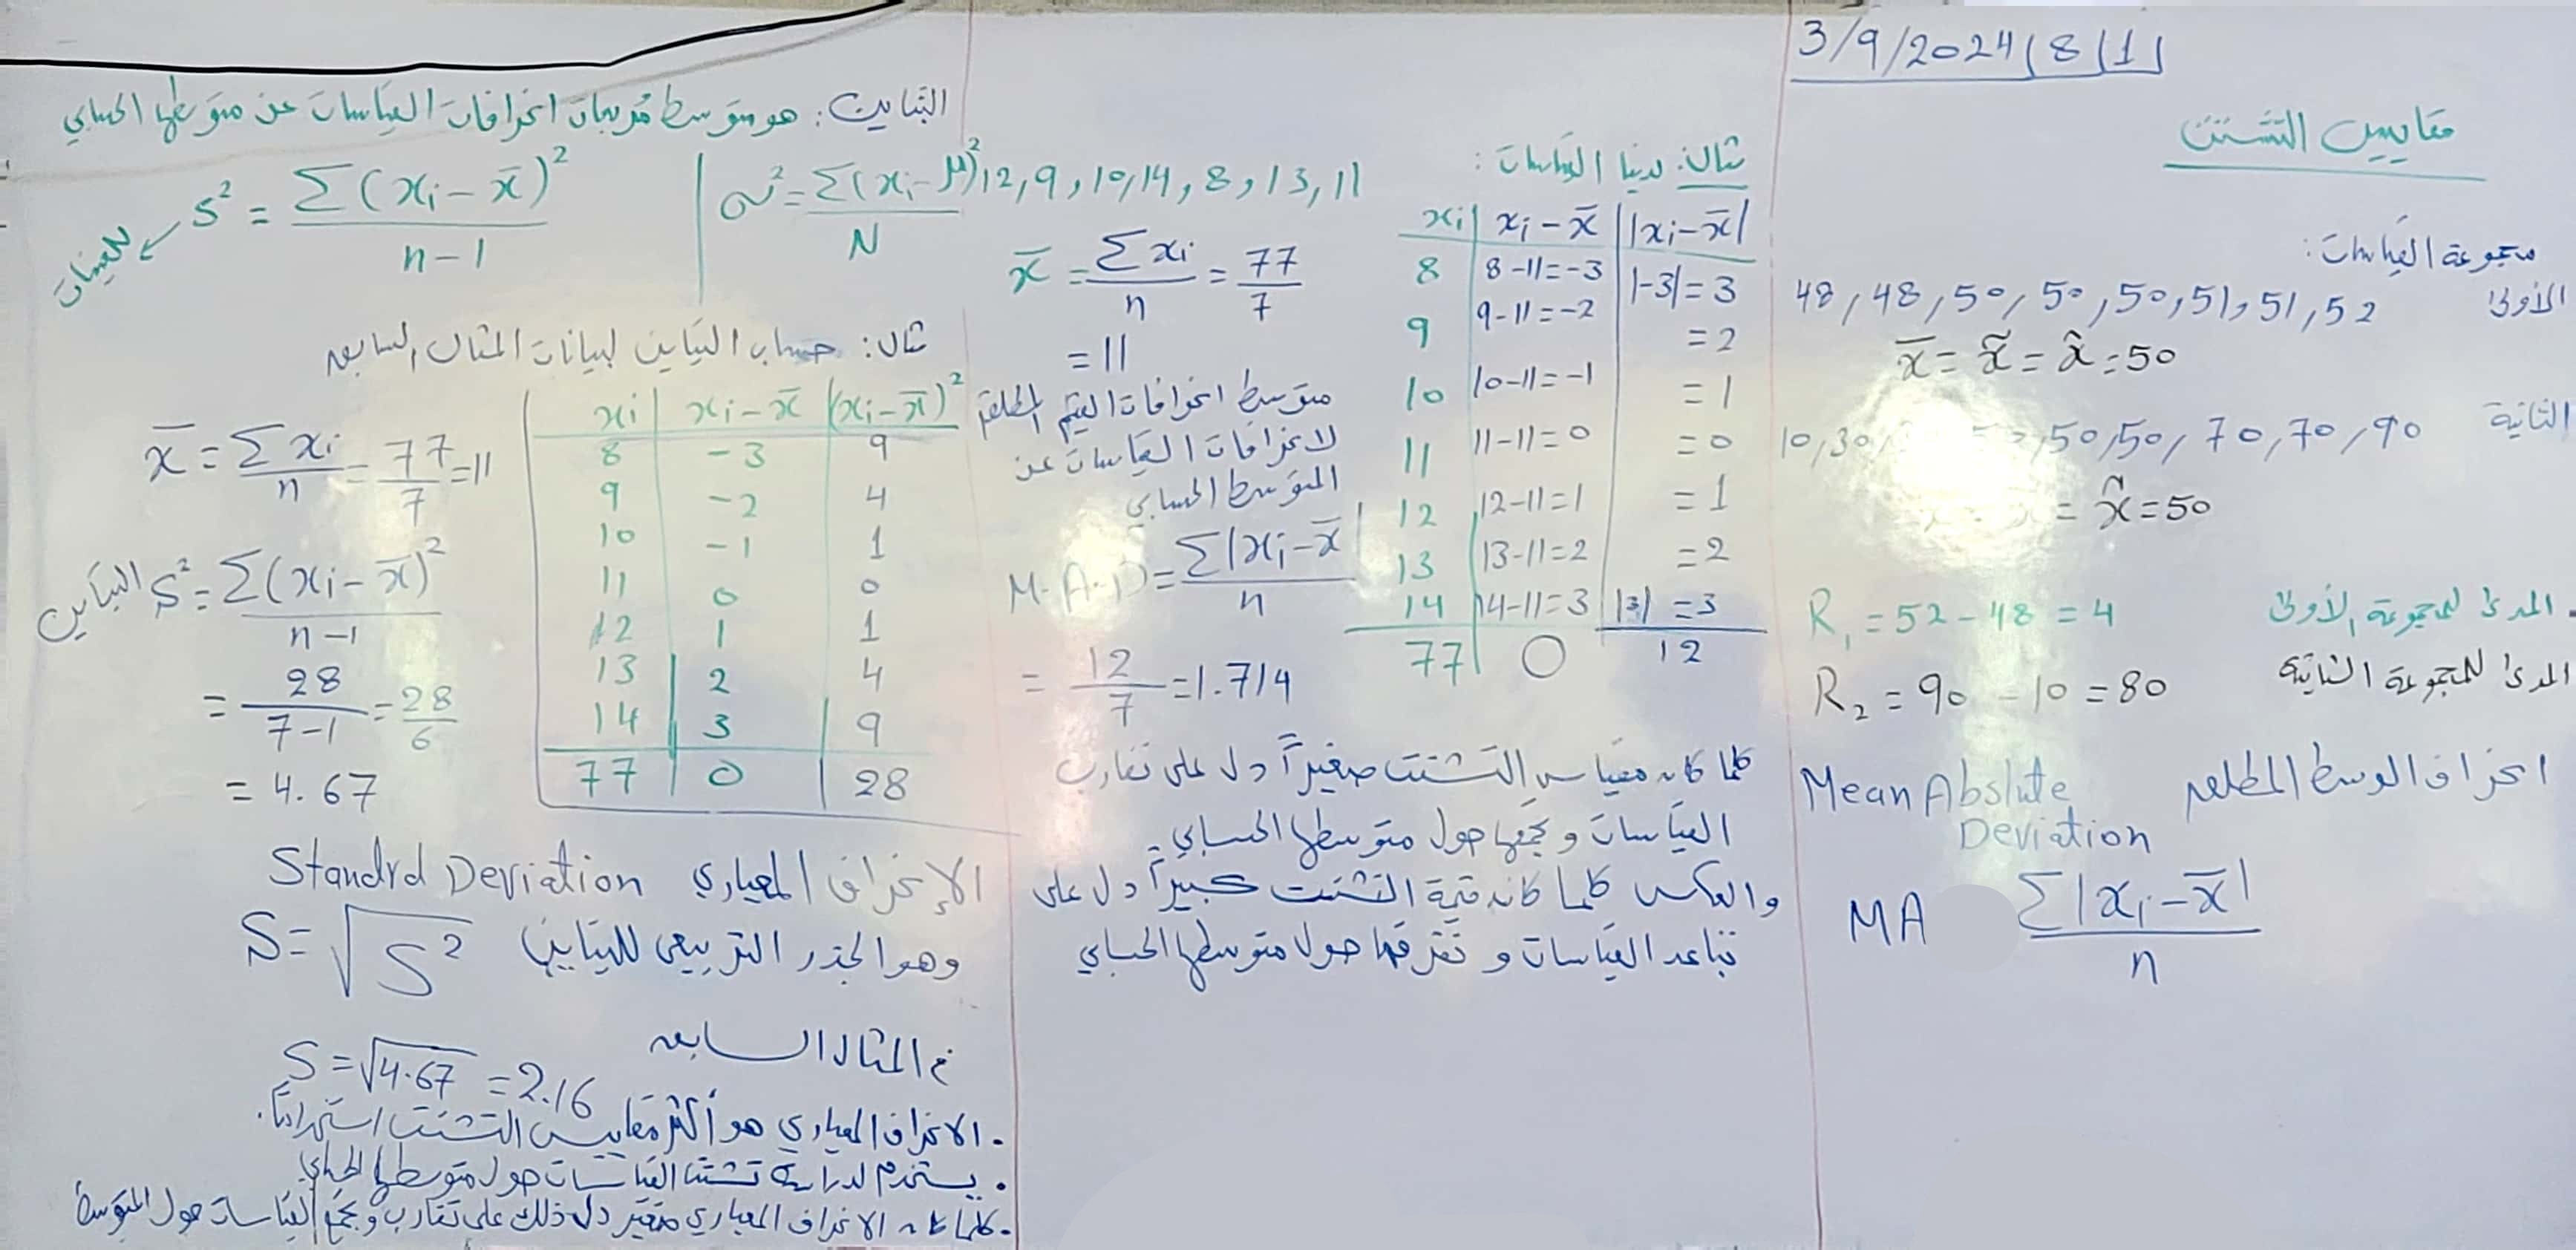 3/9/2024 | 8 | 1 |
مقاييس التشتت
مجموعة القياسات:
الأولى 48, 48, 50, 50, 50, 51, 51, 52
x̄ = x̃ = x̂ = 50
الثانية 10, 30, 50, 50, 70, 70, 90
= x̂ = 50
. المدى للمجموعة الأولى R₁ = 52 - 48 = 4
المدى للمجموعة الثانية R₂ = 90 - 10 = 80
انحراف الوسط المطلق Mean Abslute
Deviation
MA Σ|xᵢ - x̄| / n
مثال: لدينا القياسات:
12, 9, 10, 14, 8, 13, 11
xᵢ | xᵢ - x̄ | |xᵢ - x̄|
8 | 8-11=-3 | |-3|=3
9 | 9-11=-2 | =2
10 | 10-11=-1 | =1
11 | 11-11=0 | =0
12 | 12-11=1 | =1
13 | 13-11=2 | =2
14 | 14-11=3 | |3| =3
77 | 0 | 12
x̄ = Σxᵢ / n = 77 / 7
= 11
متوسط انحرافات القيم المطلقة
لانحرافات القياسات عن
المتوسط الحسابي
M.A.D = Σ|xᵢ - x̄| / n
= 12 / 7 = 1.714
كلما كان مقياس التشتت صغيراً دل على تقارب
القياسات وتجمعها حول متوسطها الحسابي.
والعكس كلما كانت قيمة التشتت كبيراً دل على
تباعد القياسات و تفرقها حول متوسطها الحسابي
التباين: هو متوسط مربعات انحرافات القياسات عن متوسطها الحسابي
للعينات ← S² = Σ(xᵢ - x̄)² / n-1 | σ² = Σ(xᵢ - μ)² / N
مثال: حساب التباين لبيانات المثال السابق
xᵢ | xᵢ - x̄ | (xᵢ - x̄)²
8 | -3 | 9
9 | -2 | 4
10 | -1 | 1
11 | 0 | 0
12 | 1 | 1
13 | 2 | 4
14 | 3 | 9
77 | 0 | 28
x̄ = Σxᵢ / n = 77 / 7 = 11
التباين S² = Σ(xᵢ - x̄)² / n-1
= 28 / 7-1 = 28 / 6
= 4.67
الإنحراف المعياري Standrd Deviation
وهو الجذر التربيعي للتباين S = √S²
في المثال السابق
S = √4.67 = 2.16
. الانحراف المعياري هو أكثر مقاييس التشتت استخداماً.
. يستخدم لدراسة تشتت القياسات حول متوسطها الحسابي
. كلما كان الانحراف المعياري صغير دل ذلك على تقارب وتجمع القياسات حول المتوسط